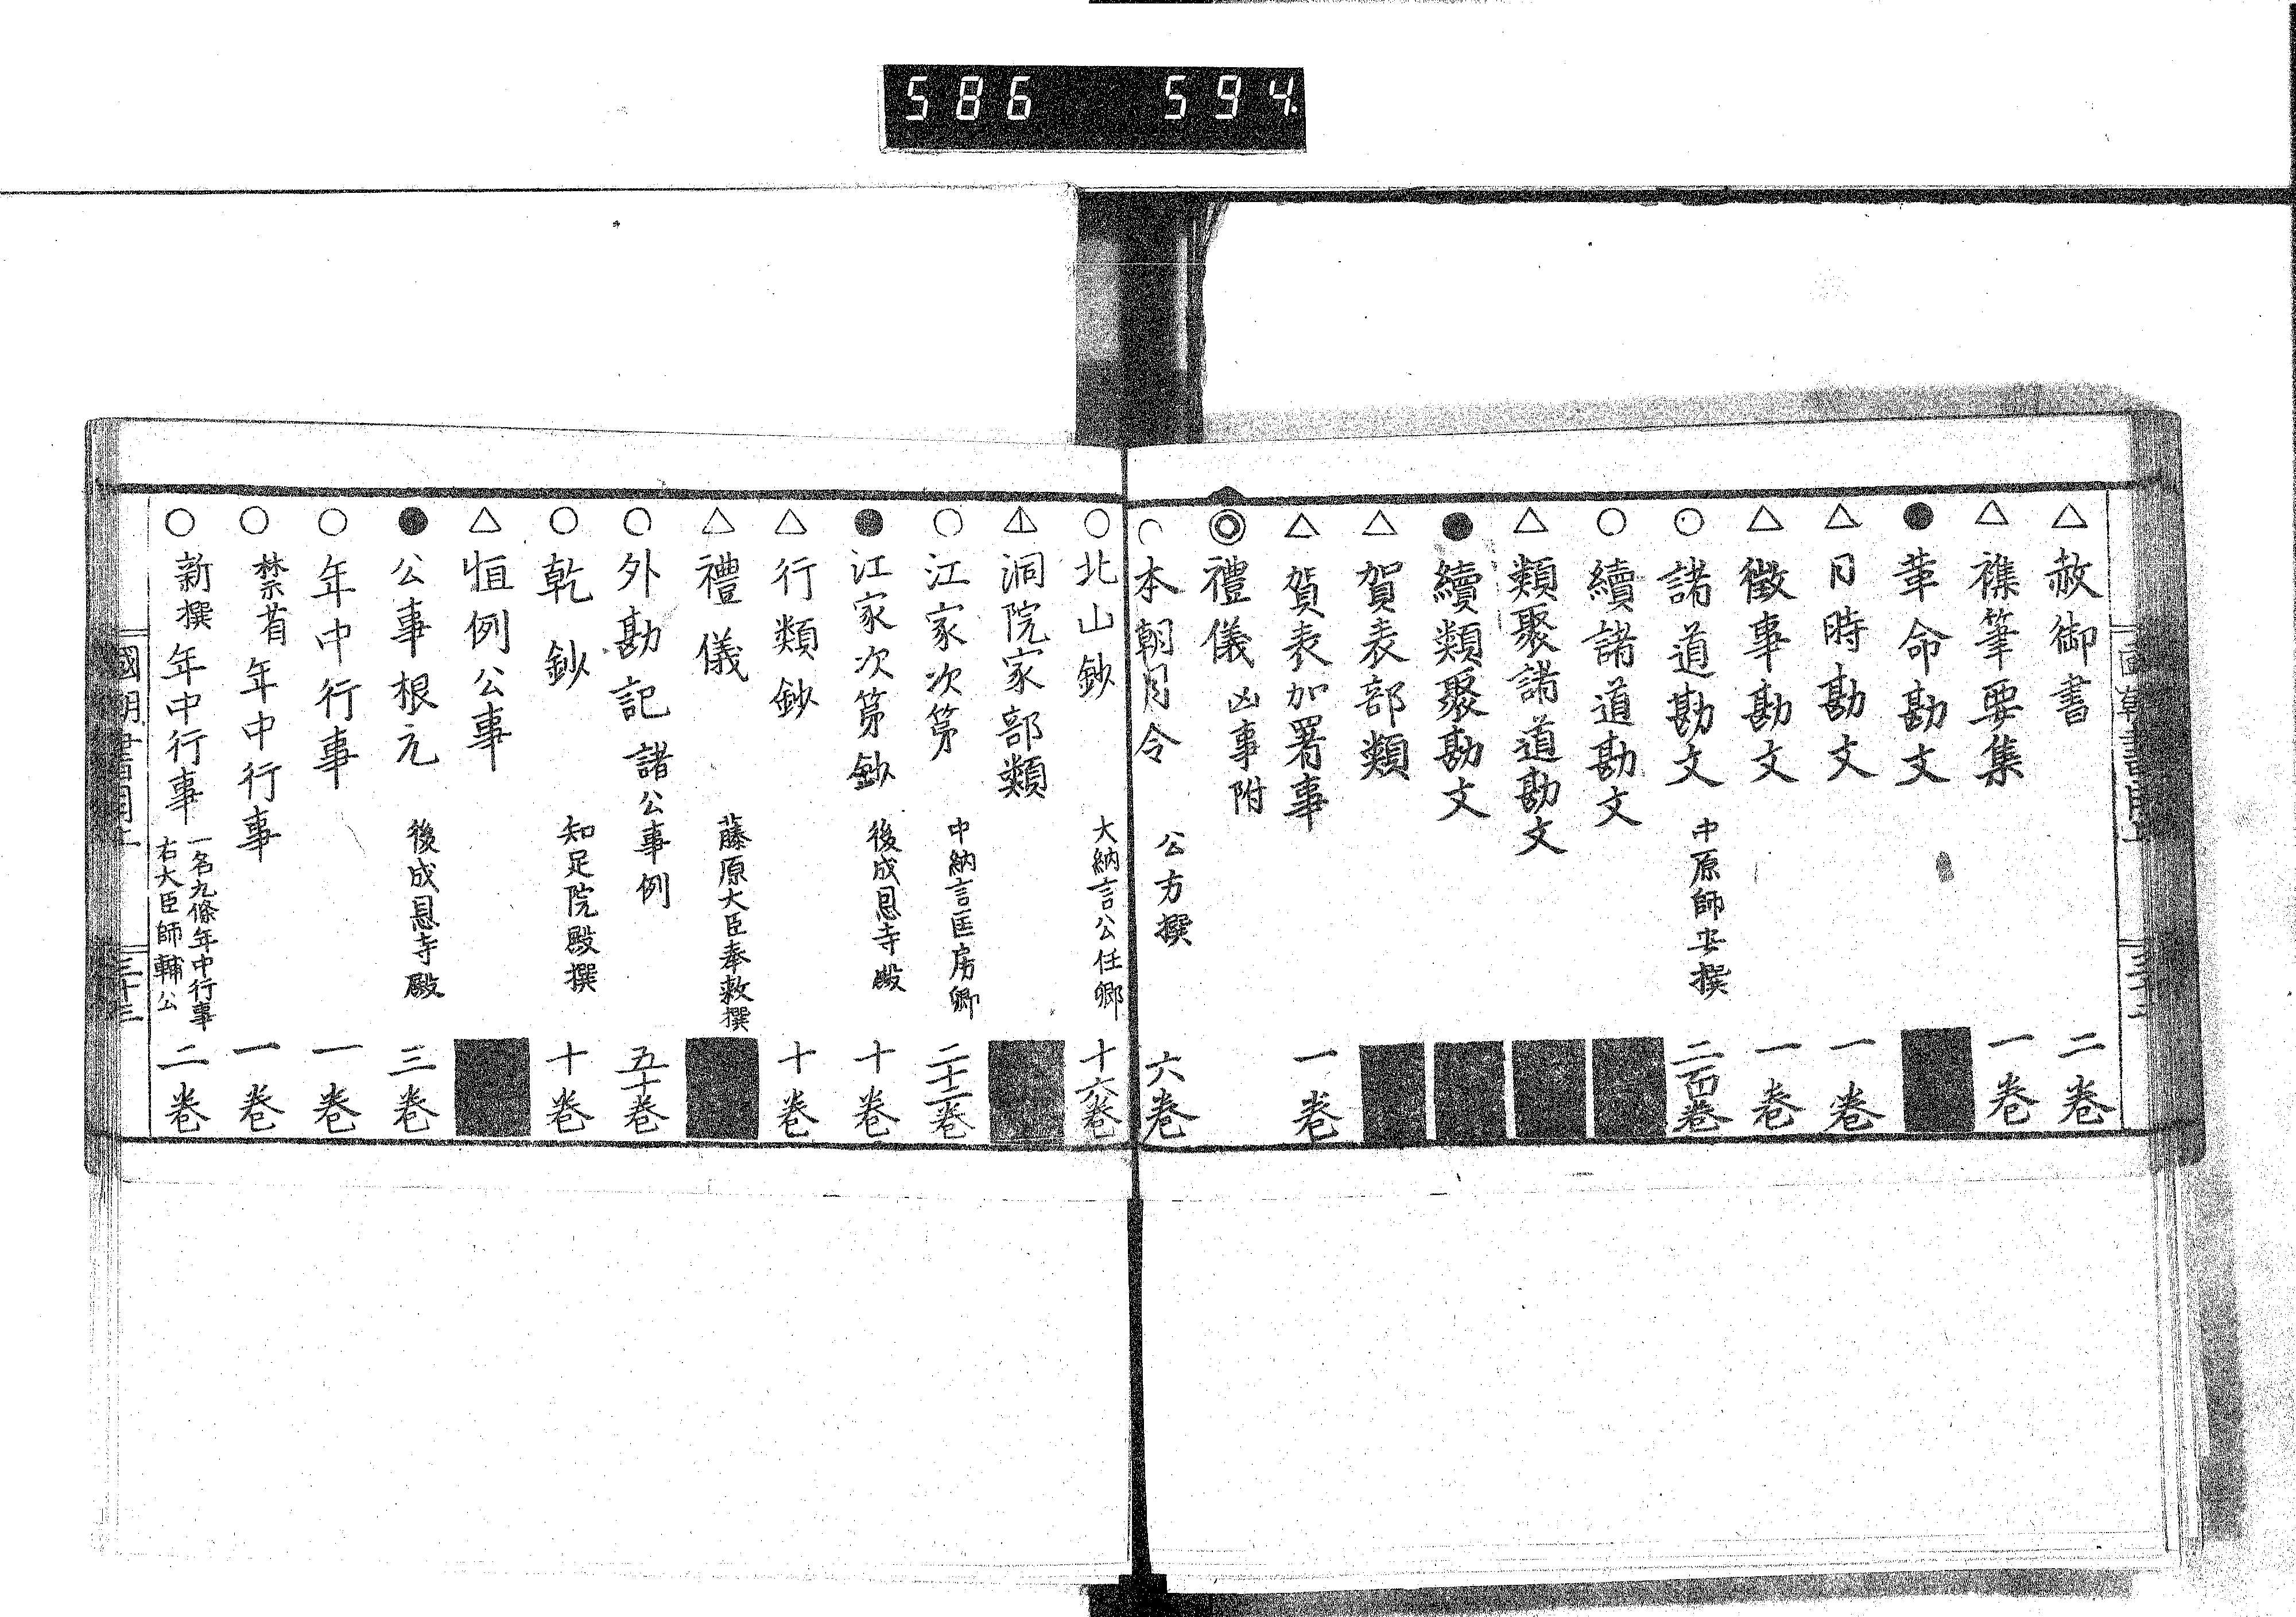 586 594
△ 赦御書 二卷
△ 襍筆要集 一卷
● 革命勘文
△ 日時勘文 一卷
△ 徵事勘文 一卷
○ 諸道勘文 中原師安撰 二百卷
○ 續諸道勘文
△ 類聚諸道勘文
● 續類聚勘文
△ 賀表部類
△ 賀表加署事 一卷
◎ 禮儀 凶事附
○ 本朝月令 公方撰 六卷
○ 北山鈔 大納言公任卿 十六卷
△ 洞院家部類
○ 江家次第 中納言匡房卿 二十一卷
● 江家次第鈔 後成恩寺殿 十卷
△ 行類鈔 十卷
△ 禮儀 藤原大臣奉敕撰
○ 外勘記 諸公事例 五十卷
○ 乾鈔 知足院殿撰 十卷
△ 恒例公事
● 公事根元 後成恩寺殿 三卷
○ 年中行事 一卷
○ 禁省年中行事 一卷
○ 新撰年中行事 一名九條年中行事 右大臣師輔公 二卷